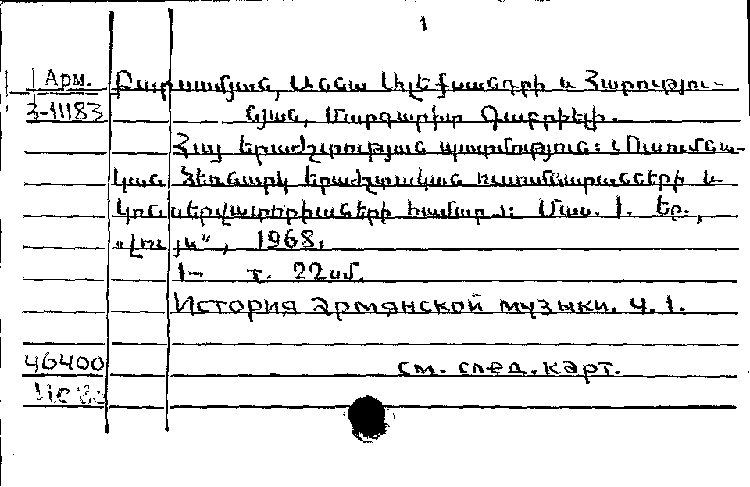 1
Арм. Բարսամյան, Աննա Ալեքսանդրի և Հարություն-
3-11183 նյան, Մարգարիտ Գաբրիելի.
Հայ երաժշտության պատմություն: (Ուսումնա-
կան ձեռնարկ երաժշտական ուսումնարանների և
կոնսերվատորիաների համար): Մաս. 1. Եր.,
«Լույս», 1968.
1- т. 22սմ.
История армянской музыки. Ч. 1.
46400 см. след. карт.